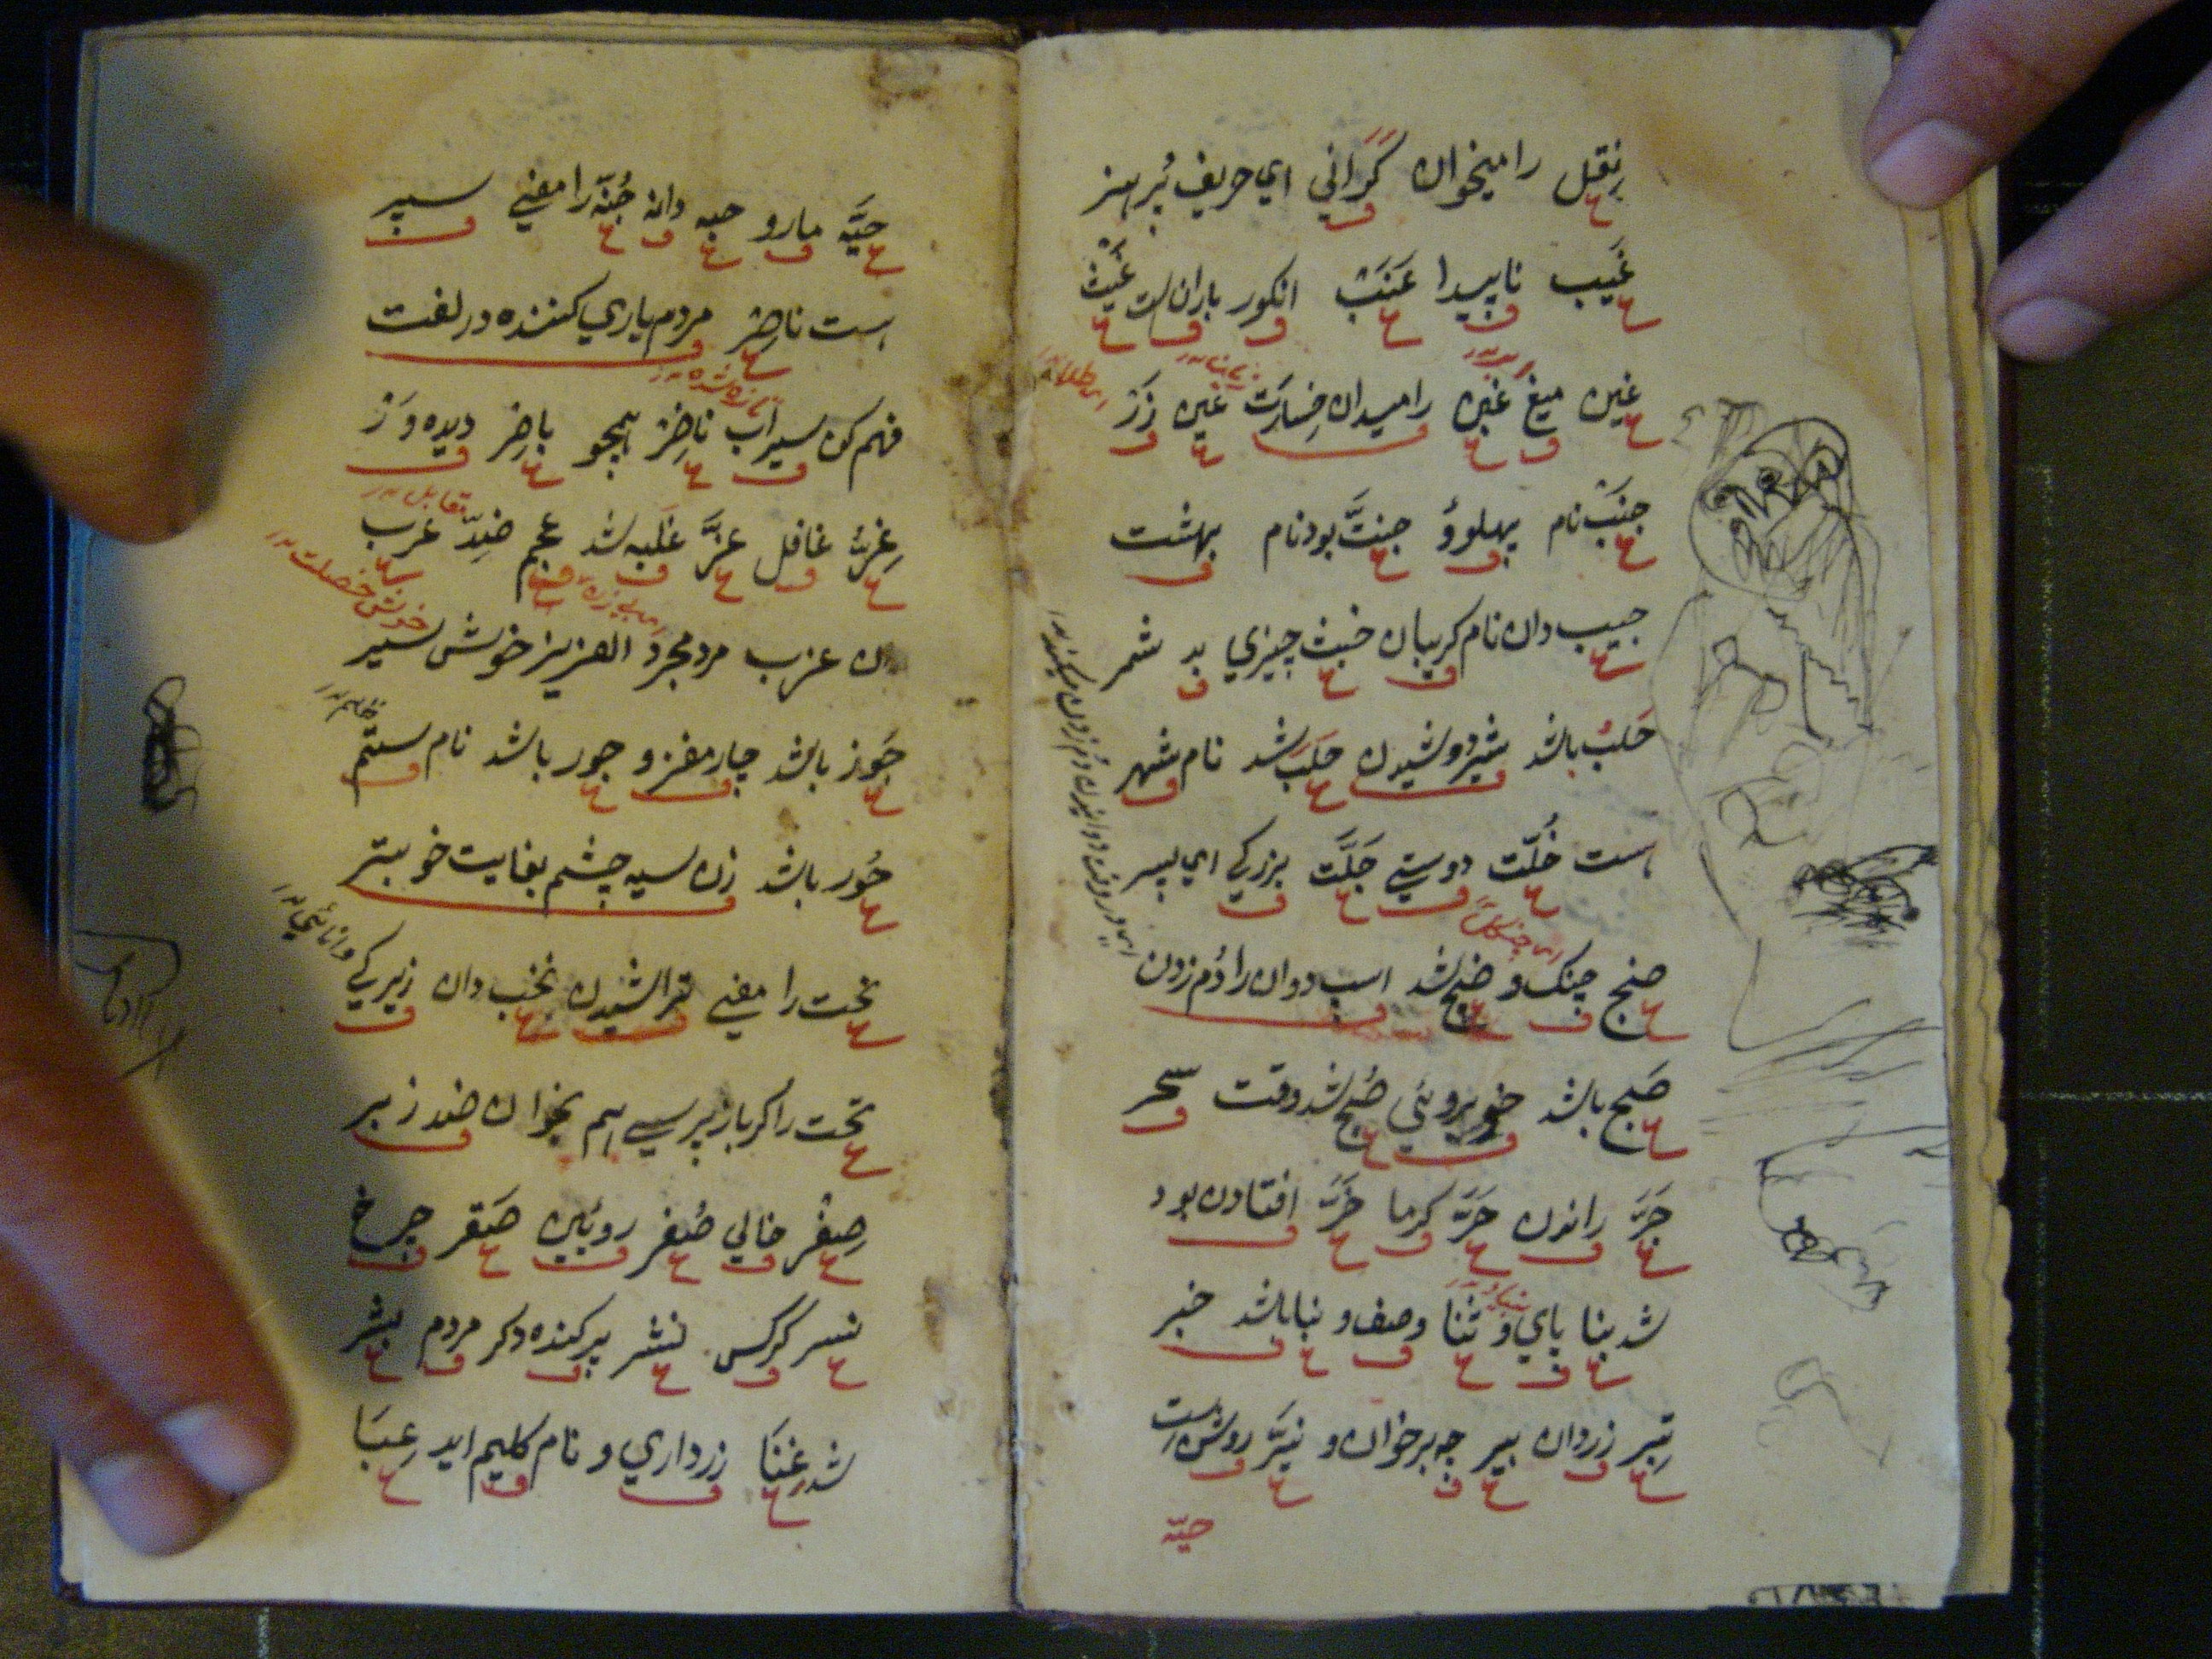 ثِقل را میخوان گرانی ای حریف پُر هنر
غَیب ناپیدا عَنَب انکور باران است غَیث
غین میغ غین را میدان خسارت غین زَر
جنَب نام پهلوؤ جنتَّ بود نام بهشت
جیب دان نام کریبان خبث چیزی بد شمر
حَلب باشد شیر دوشیدن حلَب شد نام شهر
هست خُلّت دوستی جَلَّت بزرکی ای پسر
صنج چنک و ضبح شد اسپ دوان را دُم زدن
صَبح باشد خوبروئی صُبح شد وقت سحر
جَرَّ راندن حَرَّ کرما خَرَّ افتادن بود
شد بنا پای و ثنَا وصف و نبا باشد خبر
تِبر زر دان بیر چه بر خوان و نیَّر روشن است
حیّه
حیَّه مار و حبه دانه جُنّه را معنی سپر
هست ناصِر مردم یاری کننده در لغت
فهم کن سیراب ناضِر همچو باصِر دیده ور
غِرُّ غافل عزَّ غَلَبه شد عجم ضِدّ عرب
مقابل
دان عزب مرد مجرد العزیز خوش سیر
خوش خصلت
جَوز باشد چار مغز و جور باشد نام ستم
حُور باشد زن سیه چشم بغایت خوبتر
نحت را معنی تراشیدن نخب دان زیرکی
و انائی
تحت را کر باز پرسی هم بخوان ضد زبر
صِفْر خالی صُفر روئین صَقر چرخ
نسر کرکس نشر پرکنده دکر مردم بشر
شد غِنَا زرداری و نام کلیم اید عِبَا